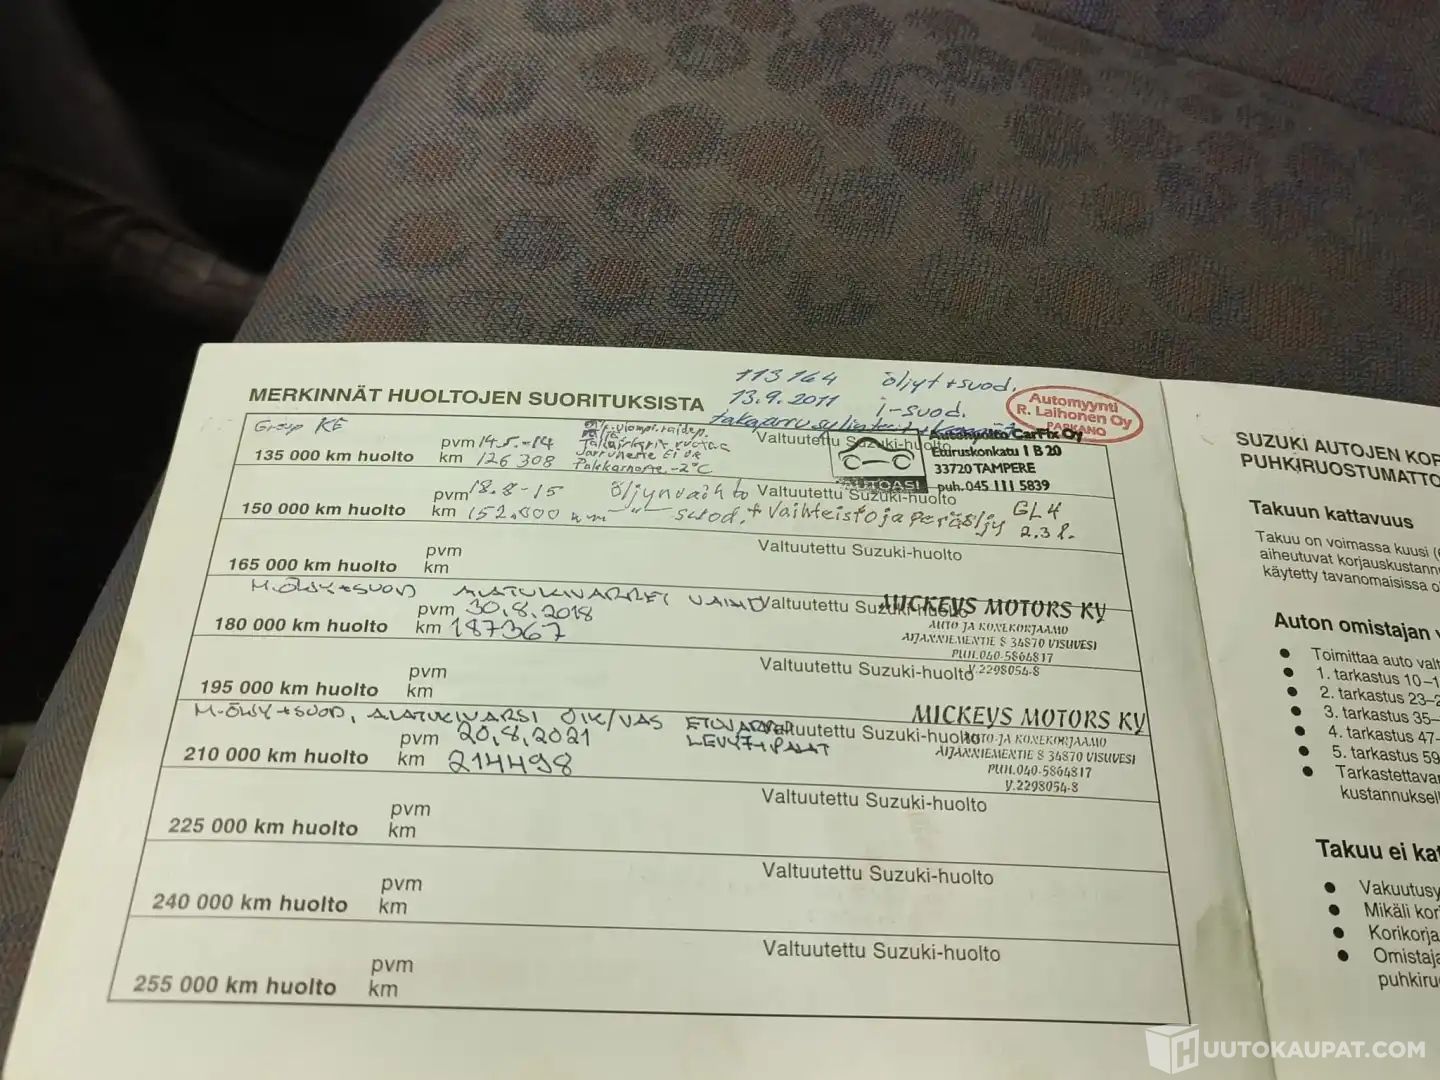 113 164 öljyt + suod.
13.9.2011 i-suod.
Automyynti
R. Laihonen Oy
PARKANO
MERKINNÄT HUOLTOJEN SUORITUKSISTA
135 000 km huolto
pvm 14.5.-14
km 126 308
Jarruneste Ei ok
-2°C
Valtuutettu Suzuki-huolto
Autohuolto CarFix Oy
Etturuskonkatu 1 B 20
33720 TAMPERE
puh. 045 111 5839
AUTOASI
150 000 km huolto
pvm 18.8-15 öljynvaihto
km 152.000 km -"- suod. + vaihteisto ja peräöljy GL4 2,3 l.
Valtuutettu Suzuki-huolto
165 000 km huolto
pvm
km
Valtuutettu Suzuki-huolto
M-ÖLJY+SUOD ALATUKIVARRET
180 000 km huolto
pvm 30.8.2018
km 187367
Valtuutettu Suzuki-huolto
MICKEYS MOTORS KY
AUTO JA KONEKORJAAMO
AIJANNIEMENTIE 8 34870 VISUVESI
PUH.040-5864817
Y.2298054-8
195 000 km huolto
pvm
km
Valtuutettu Suzuki-huolto
M-ÖLJY+SUOD, ALATUKIVARSI OIK/VAS
LEVYT+PALAT
210 000 km huolto
pvm 20.8.2021
km 214498
Valtuutettu Suzuki-huolto
MICKEYS MOTORS KY
AUTO JA KONEKORJAAMO
AIJANNIEMENTIE 8 34870 VISUVESI
PUH.040-5864817
Y.2298054-8
225 000 km huolto
pvm
km
Valtuutettu Suzuki-huolto
240 000 km huolto
pvm
km
Valtuutettu Suzuki-huolto
255 000 km huolto
pvm
km
Valtuutettu Suzuki-huolto
SUZUKI AUTOJEN
PUHKIRUOSTUMATTO
Takuun kattavuus
Takuu on voimassa kuusi
aiheutuvat korjauskustann
käytetty tavanomaisissa
Auton omistajan
● Toimittaa auto
● 1. tarkastus 10–1
● 2. tarkastus 23–2
● 3. tarkastus 35–
● 4. tarkastus 47-
● 5. tarkastus 59
● Tarkastettava
kustannuksel
Takuu ei kat
● Vakuutusy
● Mikäli kor
● Korikorja
● Omistaja
puhkiru
HUUTOKAUPAT.COM